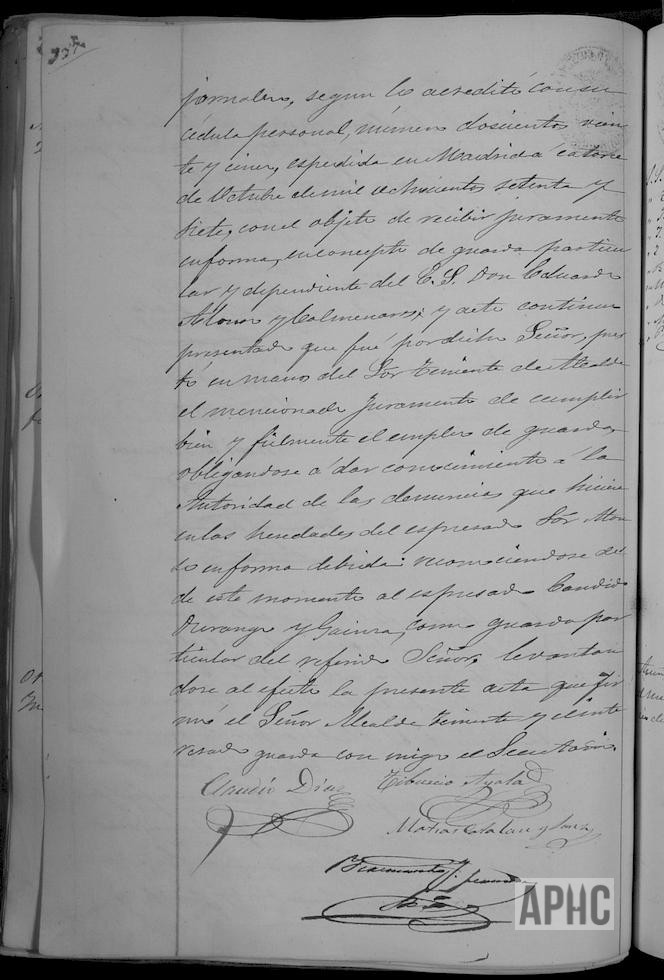 jornalero, segun lo acreditó con su
cédula personal, número doscientos vein
te y cinco, espedida en Madrid á catorce
de Octubre de mil ochocientos setenta y
siete, con el objeto de recibir juramento
en forma, en concepto de guarda particu
lar y dependiente del E. S. Don Eduardo
Alonso y Colmenares; y acto continuo
presentado que fué por dicho Señor, pres
tó en manos del Sor Teniente de Alcalde
el mencionado Juramento de cumplir
bien y fielmente el empleo de guarda
obligandose á dar conocimiento á la
Autoridad de las denuncias que hiciere
en las heredades del espresado Sór Alon
so en forma debida: reconociendose des
de este momento al espresado Candido
Durango y Gainza, como guarda par
ticular del referido Señor, levantan
dose al efecto la presente acta que fir
mó el Señor Alcalde Teniente y el inte
resado guarda con migo el Secretario.
Claudio Diaz Tiburcio Ayala
Matias Catalan y
APHC